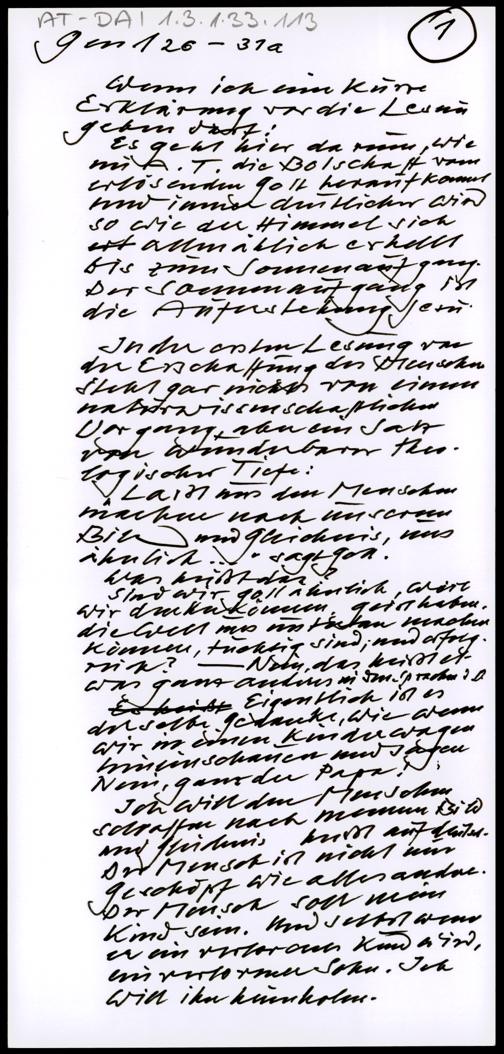 AT-DAI 1.3.1.33.113
1
Gen 1 26 – 31a
Wenn ich eine kurze
Erklärung vor die Lesung
geben darf:
Es geht hier darum, wie
im A. T. die Botschaft vom
erlösenden Gott heraufkommt
und immer deutlicher wird
so wie der Himmel sich
allmählich erhellt
bis zum Sonnenaufgang.
Der Sonnenaufgang ist
die Auferstehung Jesu.
In der ersten Lesung von
der Erschaffung des Menschen
steht gar nichts von einem
naturwissenschaftlichen
Vorgang, aber ein Satz
von wunderbarer theo-
logischer Tiefe:
Laßt uns den Menschen
machen nach unserem
Bild und Gleichnis, uns
ähnlich ..." sagt Gott.
Was heißt das?
Sind wir gottähnlich, weil
wir denken können, Geist haben,
die Welt uns untertan machen
können, tüchtig sind, und erfolg-
reich? — Nein, das heißt et-
was ganz anderes in der Sprache d.
Es heißt Eigentlich ist es
derselbe Gedanke, wie wenn
wir in einen Kinderwagen
hineinschauen und sagen
Nein, ganz der Papa!
Ich will den Menschen
schaffen nach meinem Bild
und Gleichnis heißt auf deutsch:
Der Mensch ist nicht nur
Geschöpf wie alles andre.
Der Mensch soll mein
Kind sein. Und selbst wenn
er ein verlorenes Kind wird,
ein verlorener Sohn. Ich
will ihn heimholen.